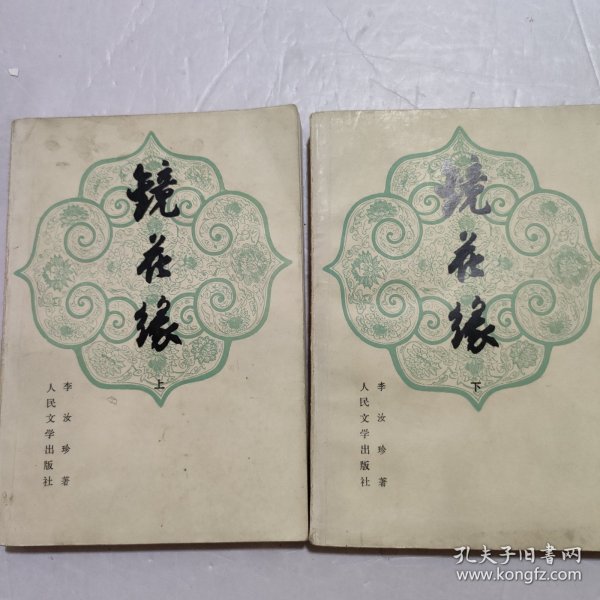 镜花缘
上
李汝珍 著
人民文学出版社
镜花缘
下
李汝珍 著
人民文学出版社
孔夫子旧书网
www.kongfz.com